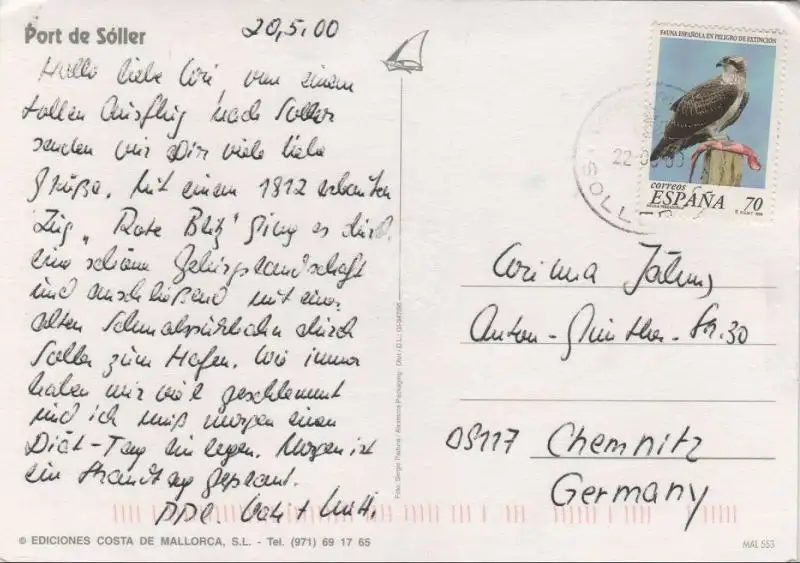 Port de Sóller
20.5.00
Hallo liebe Cori, von einem
tollen Ausflug nach Soller
senden wir Dir viele liebe
Grüße. Mit einem 1812 erbauten
Zug "Rote Blitz" ging es durch
eine schöne Gebirgslandschaft
und anschließend mit einer
alten Schmalspurbahn durch
Soller zum Hafen. Wie immer
haben wir viel geschlemmt
und ich muß morgen einen
Diät-Tag einlegen. Morgen ist
ein Strandtag geplant.
© EDICIONES COSTA DE MALLORCA, S.L. - Tel. (971) 69 17 65
FAUNA ESPAÑOLA EN PELIGRO DE EXTINCIÓN
correos
ESPAÑA 70
SOLLER
Corinna
Anton-Günther-Str. 30
09117 Chemnitz
Germany
MAL 553